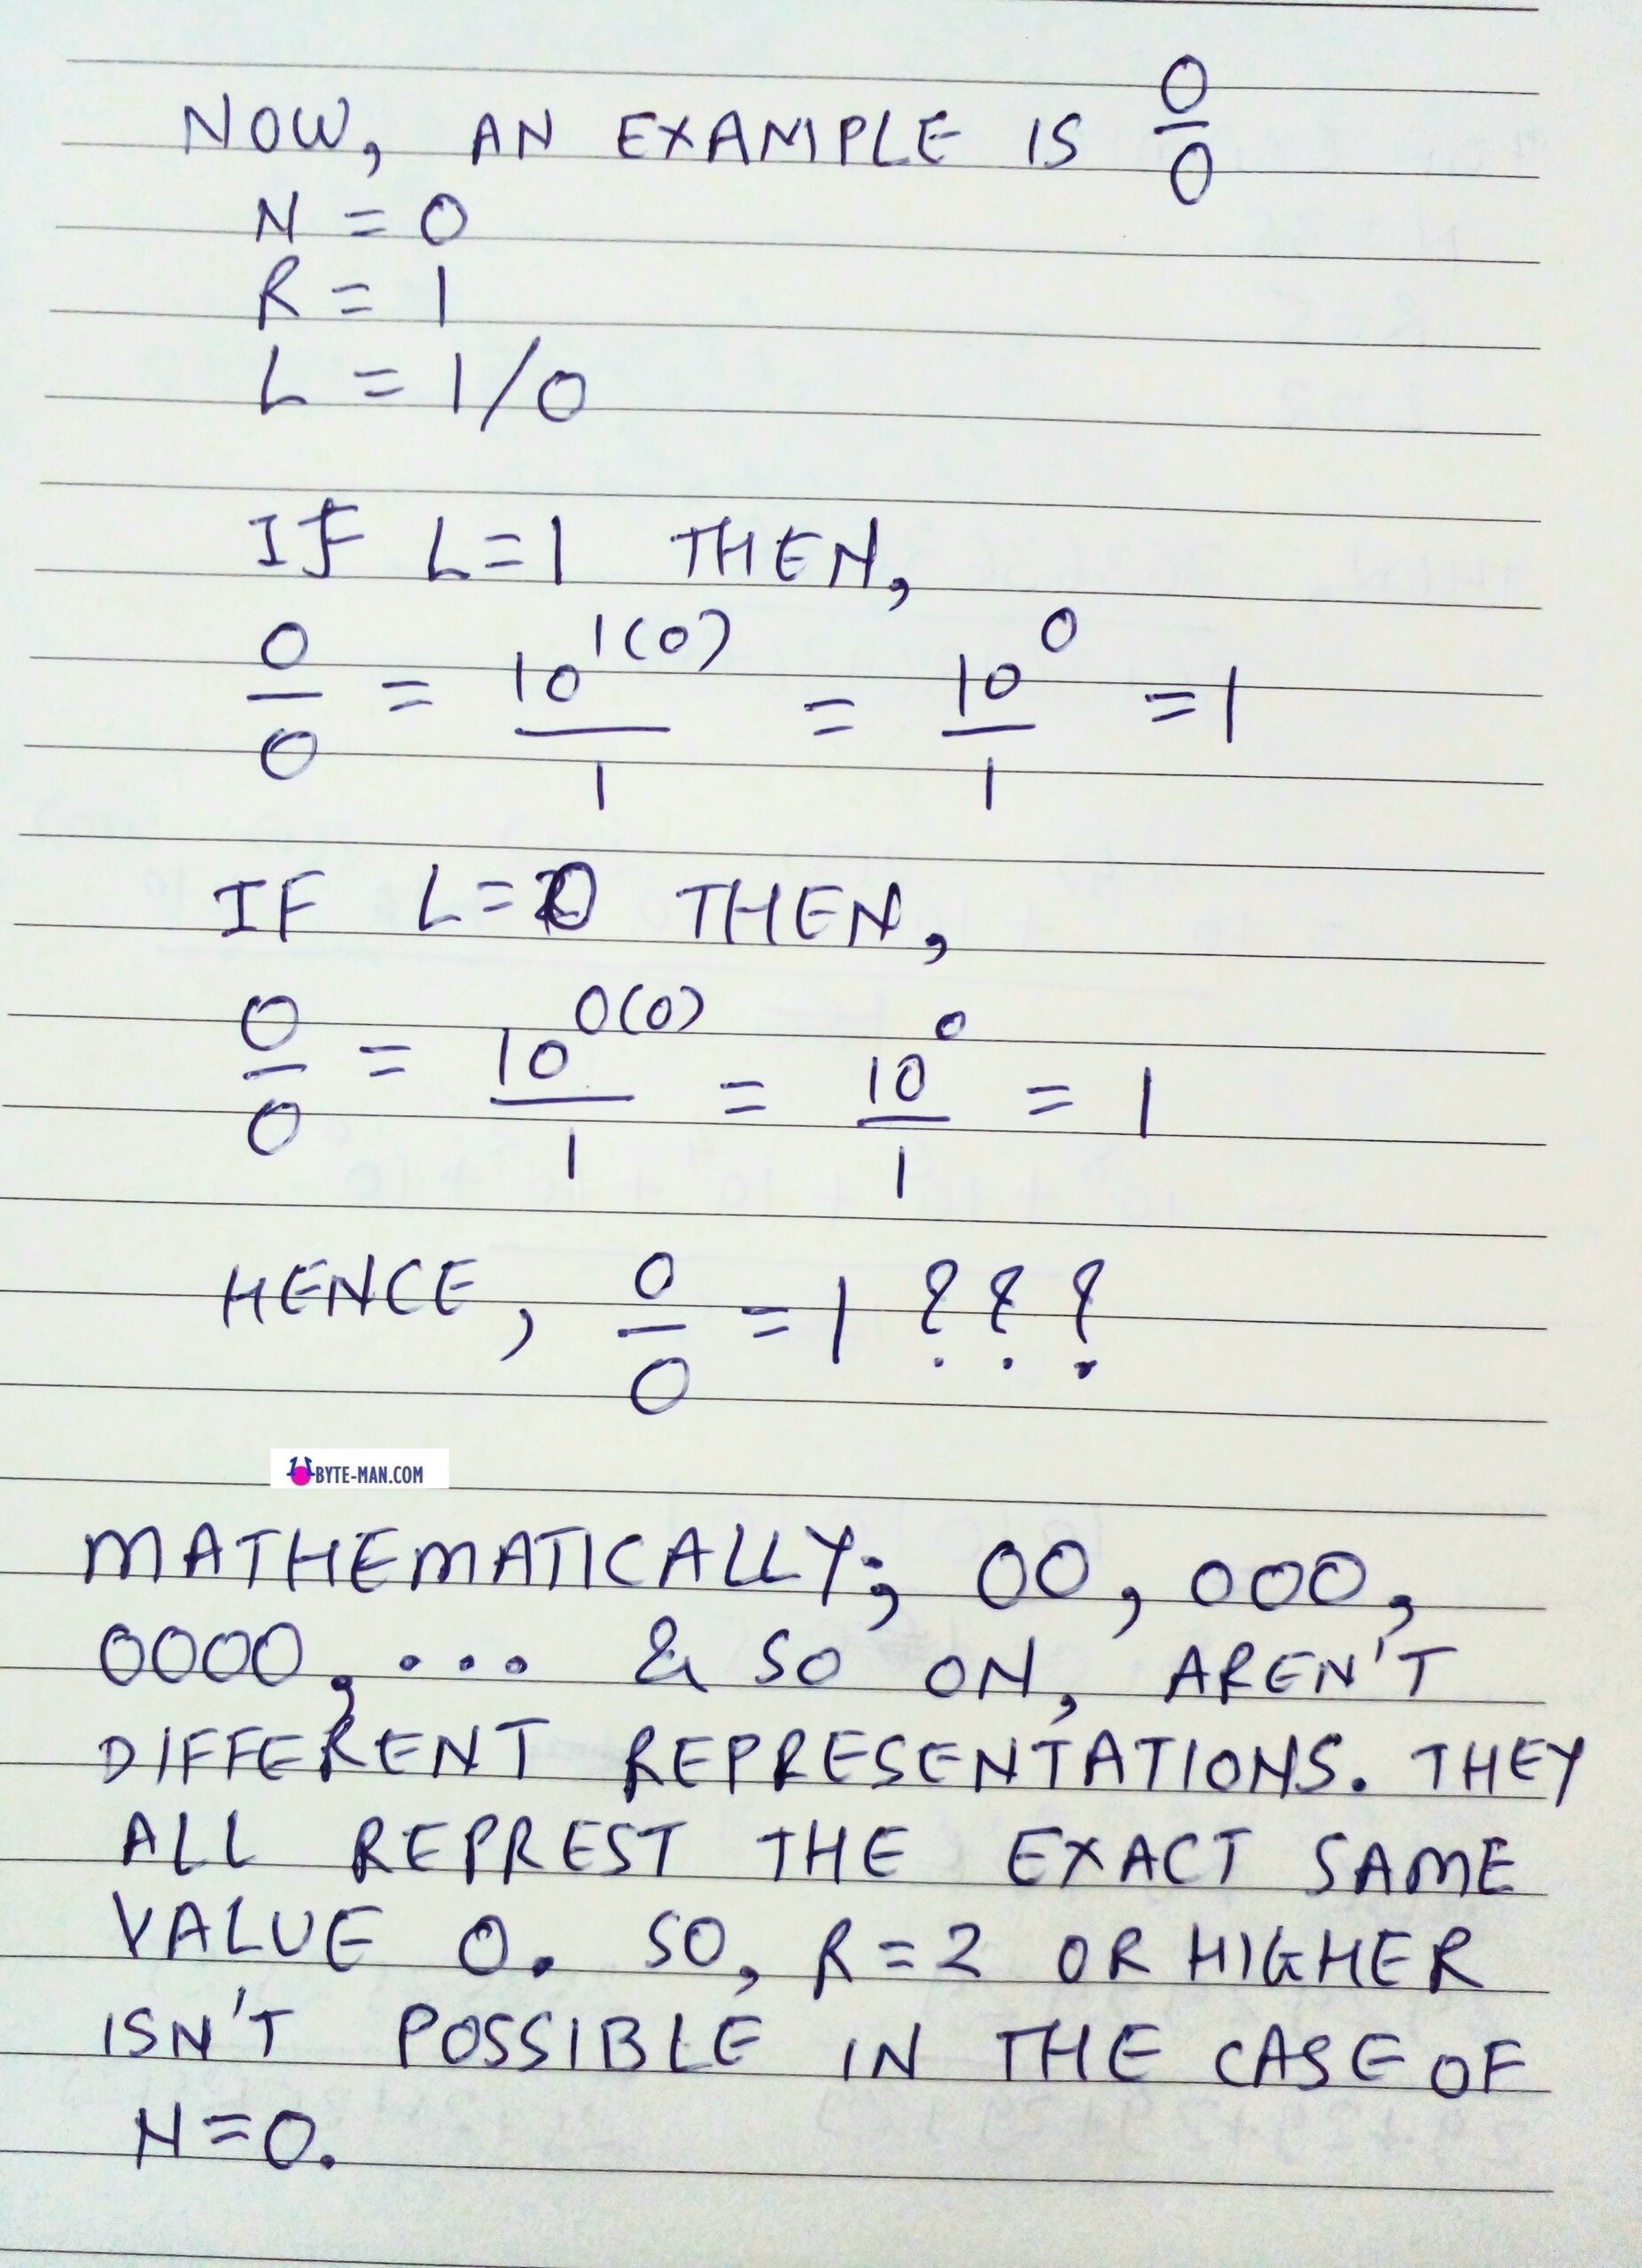 NOW, AN EXAMPLE IS 0/0
N = 0
R = 1
L = 1/0
IF L=1 THEN,
0/0 = 10^1(0)/1 = 10^0/1 = 1
IF L=0 THEN,
0/0 = 10^0(0)/1 = 10^0/1 = 1
HENCE, 0/0 = 1 ? ? ?
BYTE-MAN.COM
MATHEMATICALLY; 00, 000,
0000, ... & SO ON, AREN'T
DIFFERENT REPRESENTATIONS. THEY
ALL REPREST THE EXACT SAME
VALUE 0. SO, R=2 OR HIGHER
ISN'T POSSIBLE IN THE CASE OF
N=0.